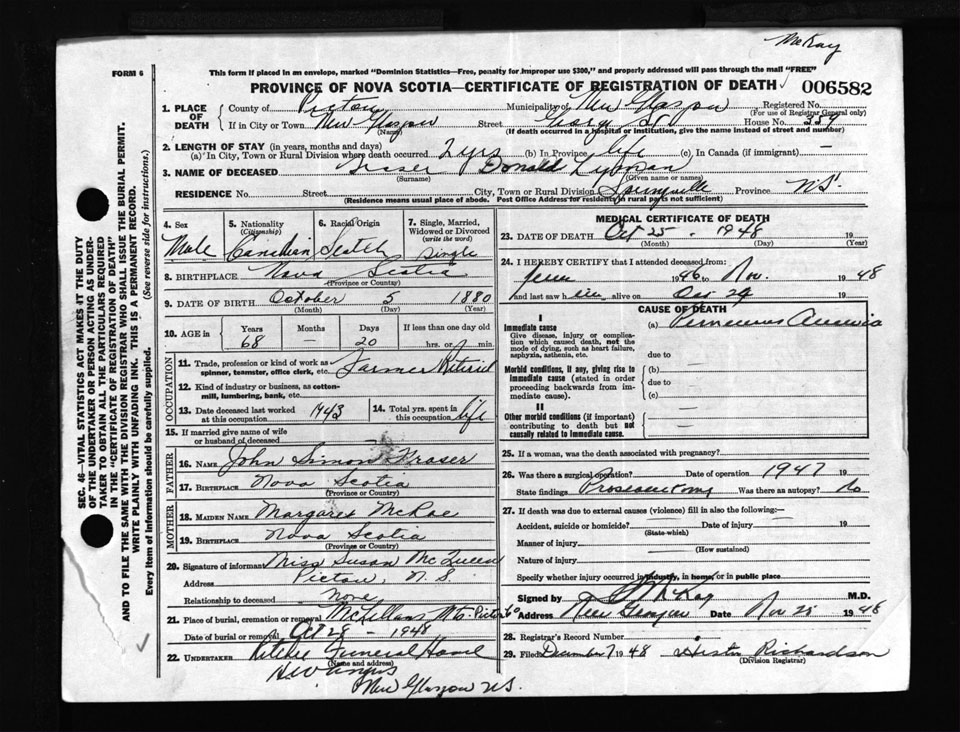 McKay
FORM 6
This form if placed in an envelope, marked "Dominion Statistics—Free, penalty for improper use $300," and properly addressed will pass through the mail "FREE"
PROVINCE OF NOVA SCOTIA—CERTIFICATE OF REGISTRATION OF DEATH 006582
1. PLACE OF DEATH
County of Pictou Municipality of New Glasgow Registered No.
(For use of Registrar General only)
If in City or Town New Glasgow Street George St. House No. 559
(Name) (If death occurred in a hospital or institution, give the name instead of street and number)
2. LENGTH OF STAY (in years, months and days)
(a) In City, Town or Rural Division where death occurred 2 yrs (b) In Province life (c) In Canada (if immigrant) —
3. NAME OF DECEASED Donald
(Surname) (Given name or names)
RESIDENCE No. Street City, Town or Rural Division Springville Province N.S.
(Residence means usual place of abode. Post Office Address for residents in rural parts not sufficient)
4. Sex Male
5. Nationality (Citizenship) Canadian
6. Racial Origin Scotch
7. Single, Married, Widowed or Divorced (write the word) Single
8. BIRTHPLACE Nova Scotia
(Province or Country)
9. DATE OF BIRTH October 5 1880
(Month) (Day) (Year)
10. AGE in Years 68 Months — Days 20 If less than one day
hrs. or min.
OCCUPATION
11. Trade, profession or kind of work as spinner, teamster, office clerk, etc. Farmer Retired
12. Kind of industry or business, as cotton-mill, lumbering, bank, etc.
13. Date deceased last worked at this occupation 1943
14. Total yrs. spent in this occupation life
15. If married give name of wife or husband of deceased
FATHER
16. NAME John Simon Fraser
17. BIRTHPLACE Nova Scotia
(Province or Country)
MOTHER
18. MAIDEN NAME Margaret McRae
19. BIRTHPLACE Nova Scotia
(Province or Country)
20. Signature of informant Miss Susan McQueen
Address Pictou, N.S.
Relationship to deceased None
21. Place of burial, cremation or removal McLellans Mt. Pictou Co
Date of burial or removal Oct 28 - 1948
22. UNDERTAKER Funeral Home
(Name and address)
New Glasgow N.S.
MEDICAL CERTIFICATE OF DEATH
23. DATE OF DEATH Oct 25 . 1948 19
(Month) (Day) (Year)
24. I HEREBY CERTIFY that I attended deceased from:
1946 to Nov. 1948
and last saw him alive on Oct 24 19
CAUSE OF DEATH
I
Immediate cause
Give disease, injury or complication which caused death, not the mode of dying, such as heart failure, asphyxia, asthenia, etc.
(a) Pernicious Anemia
due to
Morbid conditions, if any, giving rise to immediate cause (stated in order proceeding backwards from immediate cause).
(b) —
due to
(c) —
II
Other morbid conditions (if important) contributing to death but not causally related to immediate cause.
25. If a woman, was the death associated with pregnancy?
26. Was there a surgical operation? Date of operation 1947 19
State findings Was there an autopsy? No
27. If death was due to external causes (violence) fill in also the following:—
Accident, suicide or homicide? Date of injury 19
(State which)
Manner of injury
(How sustained)
Nature of injury
Specify whether injury occurred in industry, in home, or in public place
Signed by McKay M.D.
Address New Glasgow Date Nov 25 1948
28. Registrar's Record Number
29. Filed December 7 1948 Richardson
(Division Registrar)
SEC. 46—VITAL STATISTICS ACT MAKES IT THE DUTY
OF THE UNDERTAKER OR PERSON ACTING AS UNDERTAKER TO OBTAIN ALL THE PARTICULARS REQUIRED
IN THE "CERTIFICATE OF REGISTRATION OF DEATH"
AND TO FILE THE SAME WITH THE DIVISION REGISTRAR WHO SHALL ISSUE THE BURIAL PERMIT.
WRITE PLAINLY WITH UNFADING INK. THIS IS A PERMANENT RECORD.
Every item of information should be carefully supplied. (See reverse side for instructions.)